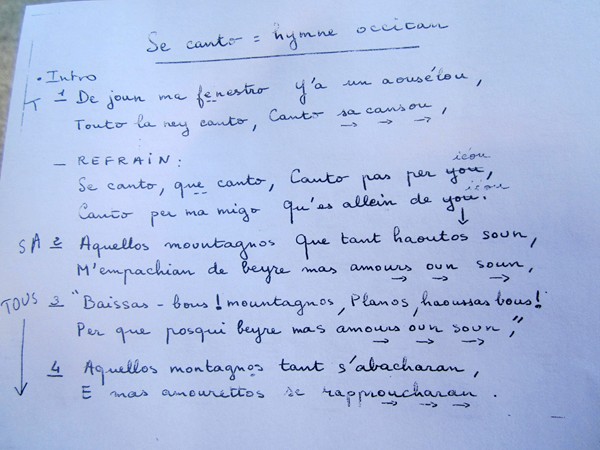 Se canto = hymne occitan
• Intro
T 1 De joun ma fenestro y'a un aousélou,
Touto la ney canto, Canto sa cansou,
– REFRAIN :
iéou
Se canto, que canto, Canto pas per you,
iéou
Canto per ma migo qu'es allein de you.
SA 2 Aquellos mountagnos que tant haoutos soun,
M'empachian de beyre mas amours oun soun,
TOUS 3 "Baissas-bous! mountagnos, Planos, haoussas bous!
Per que posqui beyre mas amours oun soun,"
4 Aquellos montagnos tant s'abacharan,
E mas amourettos se rapproucharan.